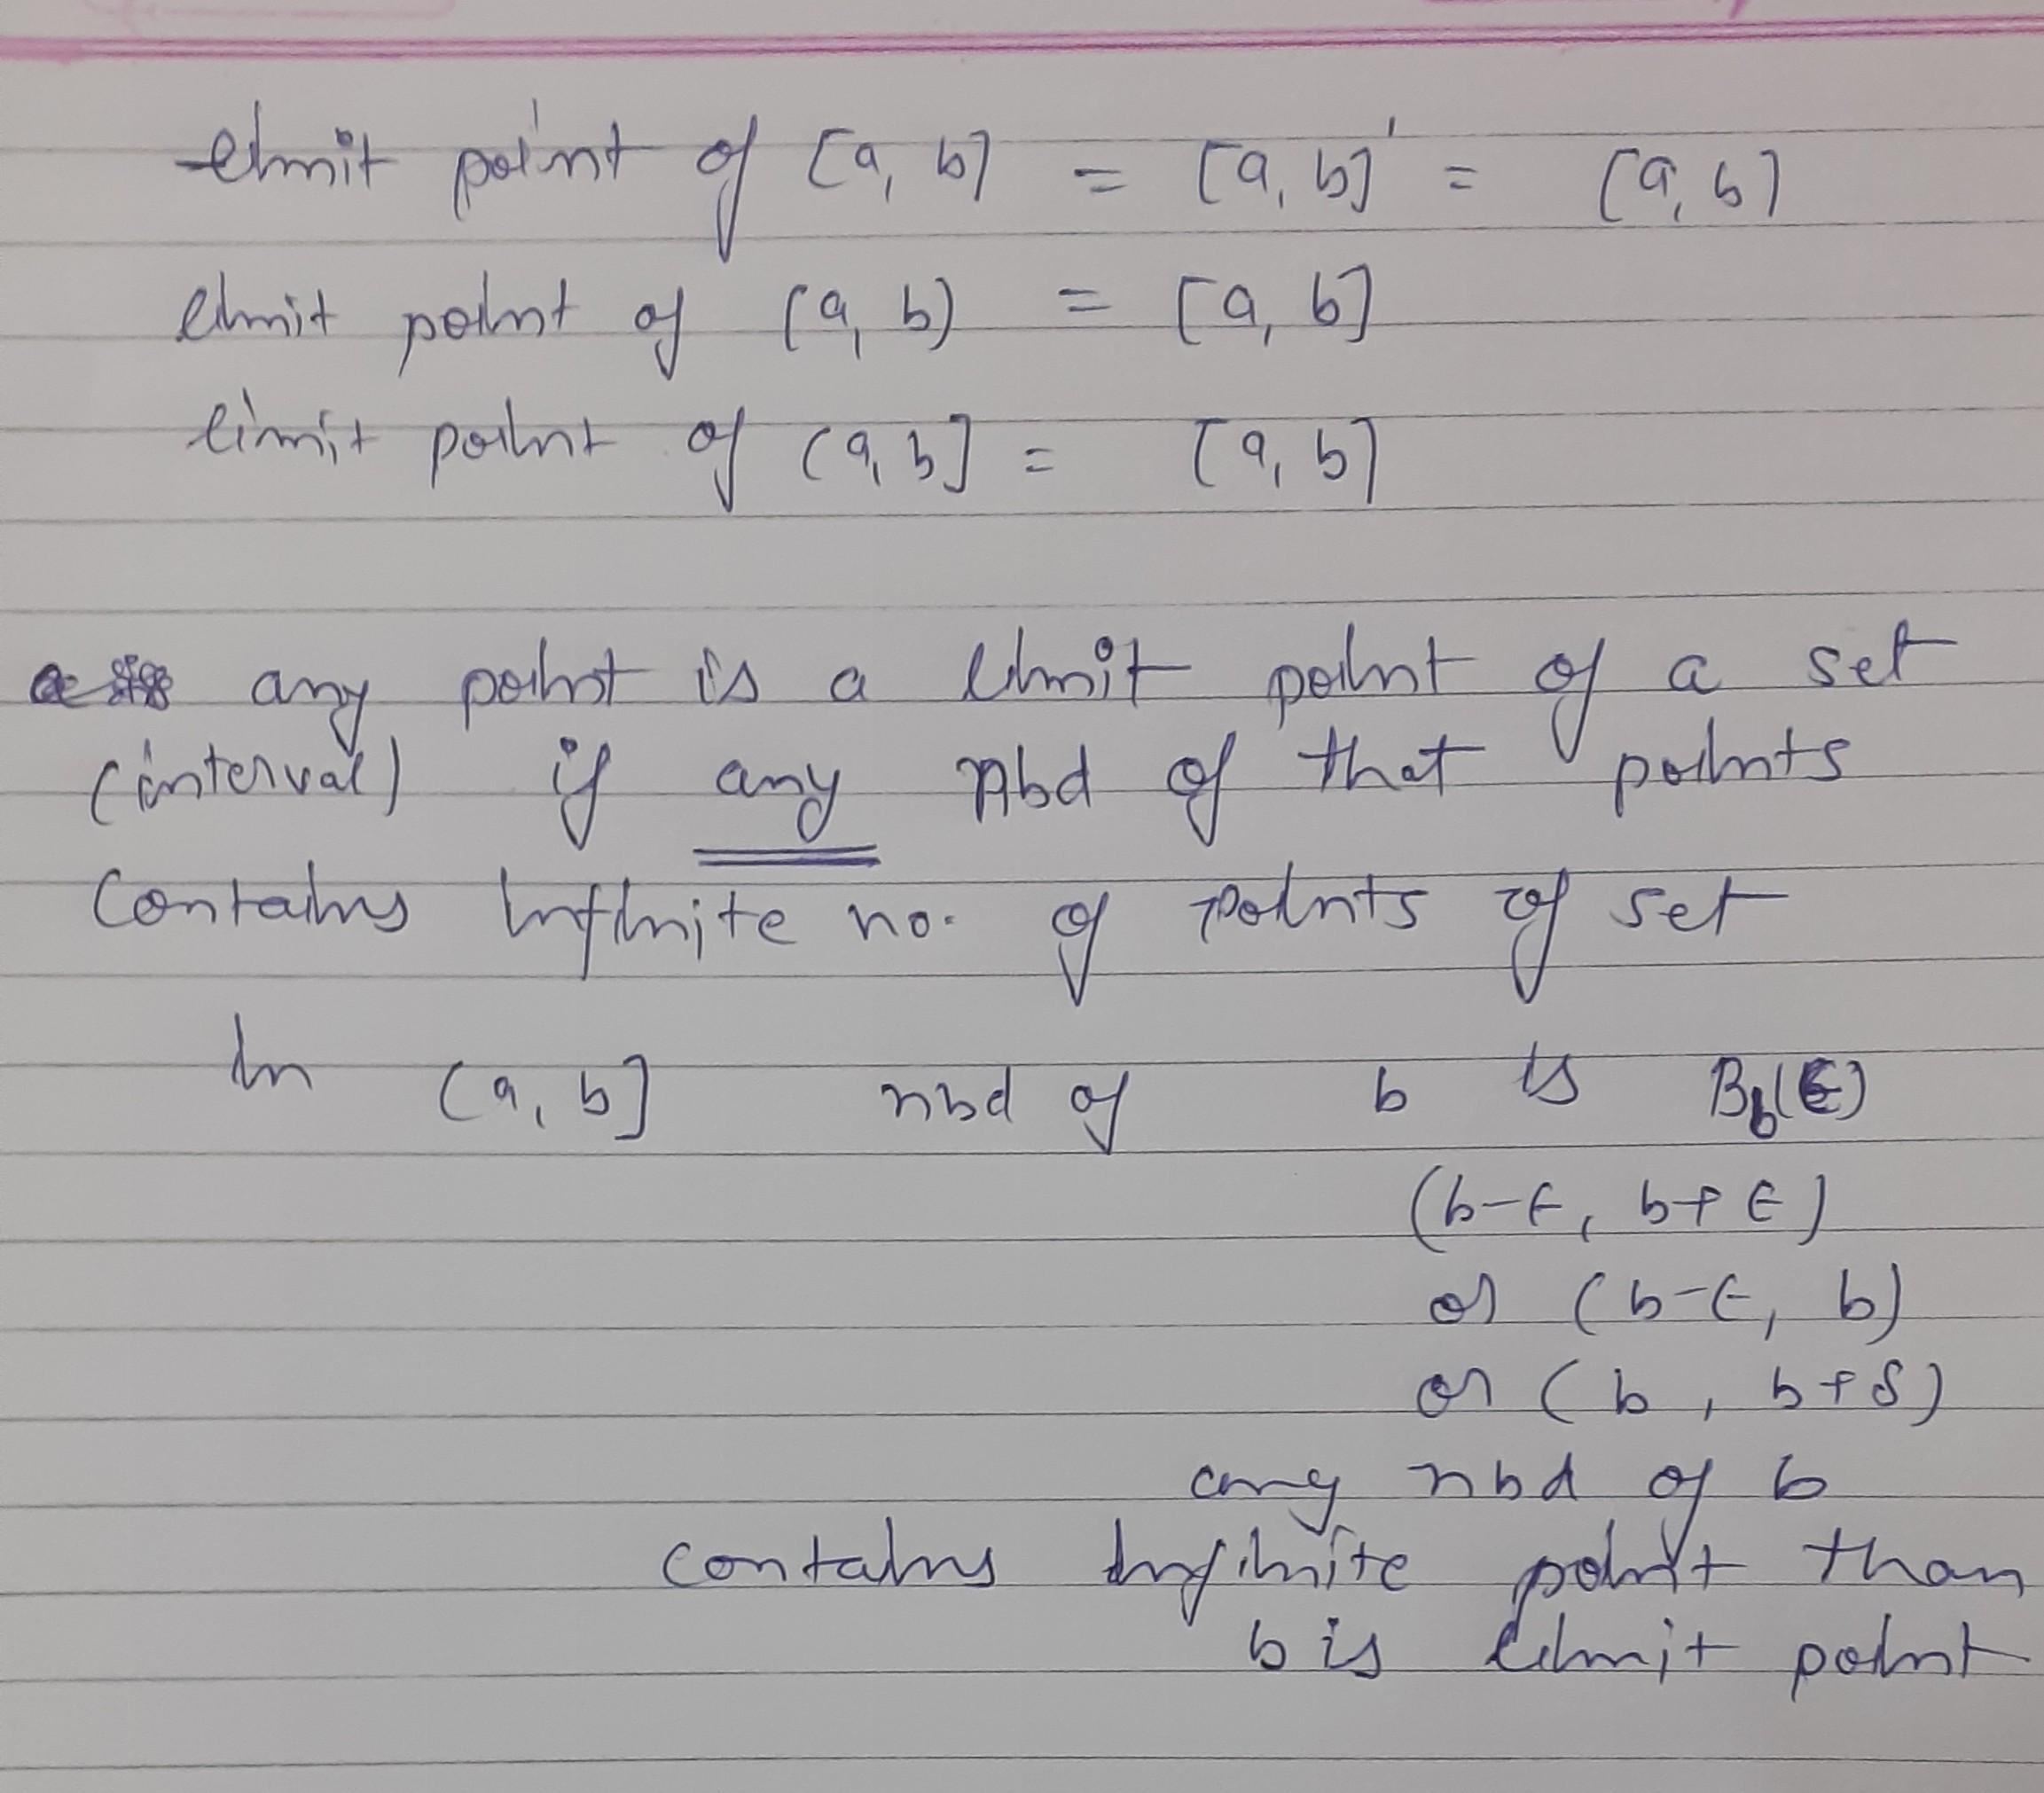 limit point of [a, b] = [a, b]' = [a, b]
limit point of (a, b) = [a, b]
limit point of (a, b] = [a, b]
any point is a limit point of a set
(interval) if any nbd of that points
contains infinite no. of points of set
In (a, b] nbd of b is B_b(ϵ)
(b-ϵ, b+ϵ)
or (b-ϵ, b)
or (b, b+δ)
any nbd of b
contains infinite point than
b is limit point